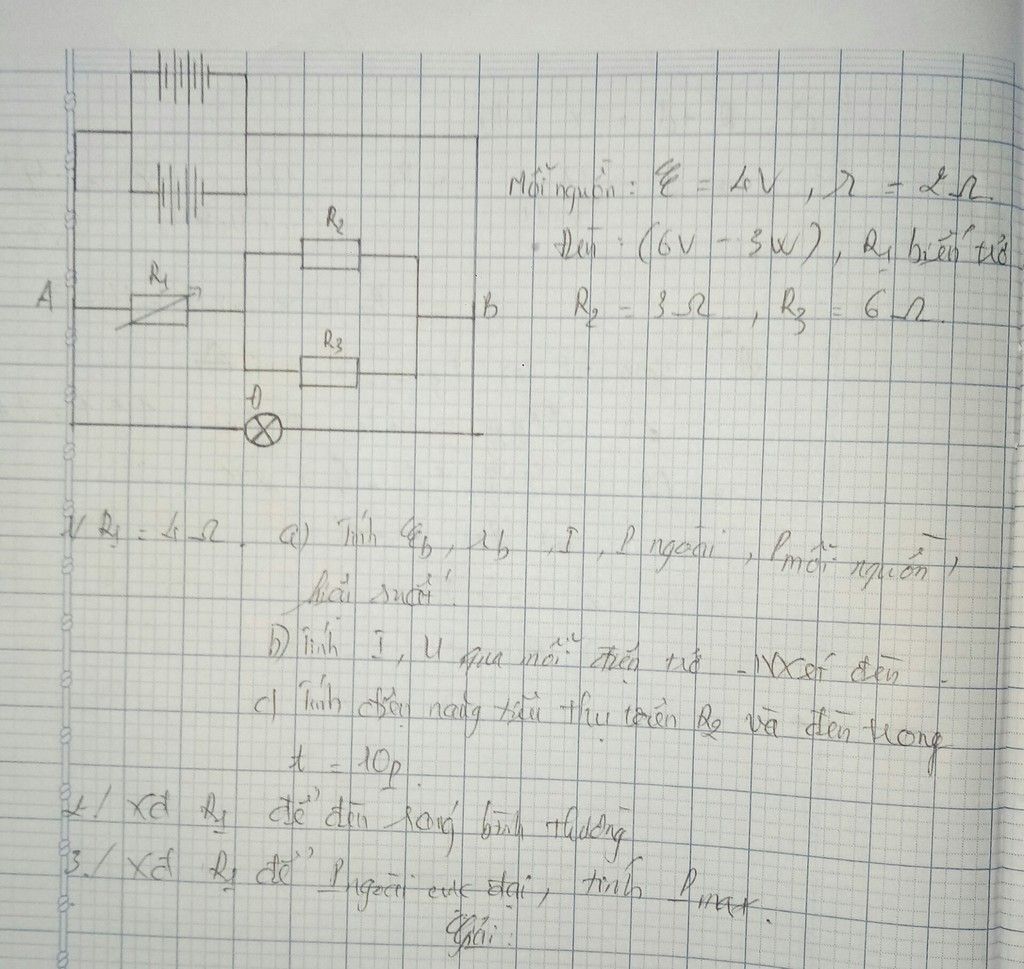 R₂
Mỗi nguồn: ℰ = 4V, r = 2Ω
Đèn: (6V - 3W), R₁ biến trở
A R₁ B R₂ = 3Ω, R₃ = 6Ω
R₃
Đ
1/ R₁ = 4Ω. a) Tính ℰb, rb, I, P ngoài, P mỗi nguồn,
hiệu suất.
b) Tính I, U qua mỗi điện trở - NXét đèn.
c) Tính điện năng tiêu thụ trên R₂ và đèn trong
t = 10p.
2./ Xđ R₁ để đèn sáng bình thường
3./ Xđ R₁ để P ngoài cực đại, tính Pmax.
Giải: